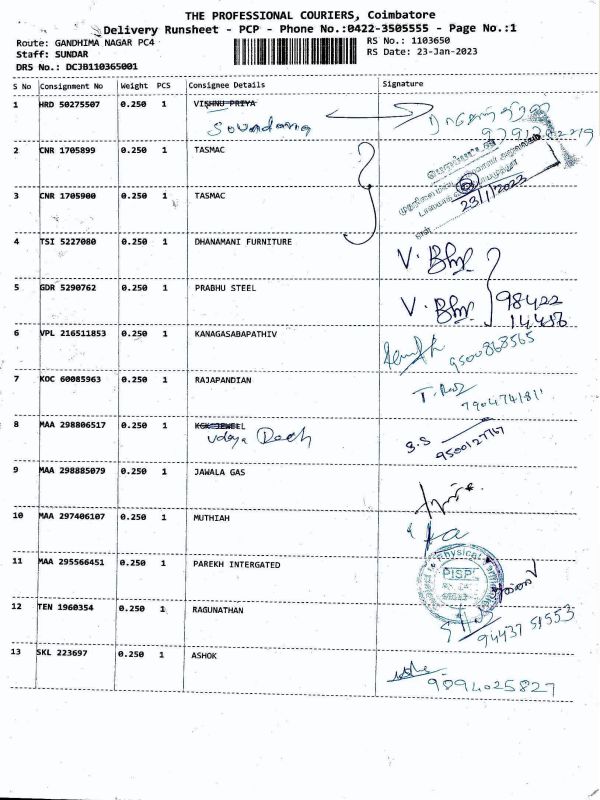 THE PROFESSIONAL COURIERS, Coimbatore
Delivery Runsheet - PCP - Phone No.:0422-3505555 - Page No.:1
Route: GANDHIMA NAGAR PC4 RS No.: 1103650
Staff: SUNDAR RS Date: 23-Jan-2023
DRS No.: DCJB110365001
S No Consignment No Weight PCS Consignee Details Signature
1 HRD 50275507 0.250 1 VISHNU PRIYA
Soundarya
2 CNR 1705899 0.250 1 TASMAC
3 CNR 1705900 0.250 1 TASMAC
23/1/2023
4 TSI 5227080 0.250 1 DHANAMANI FURNITURE V. Bhp
5 GDR 5290762 0.250 1 PRABHU STEEL V. Bhp 98422
14486
6 VPL 216511853 0.250 1 KANAGASABAPATHIV 9500868565
7 KOC 60085963 0.250 1 RAJAPANDIAN T. Raj
7904741811
8 MAA 298806517 0.250 1 KGK JEWEL S.S
Udaya 9500127767
9 MAA 298885079 0.250 1 JAWALA GAS
10 MAA 297406107 0.250 1 MUTHIAH
11 MAA 295566451 0.250 1 PAREKH INTERGATED Physical PISPL
12 TEN 1960354 0.250 1 RAGUNATHAN 94437 51553
13 SKL 223697 0.250 1 ASHOK 9894025827